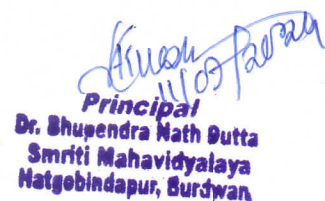 11/07/2024
Principal
Dr. Bhupendra Nath Dutta
Smriti Mahavidyalaya
Hatgobindapur, Burdwan